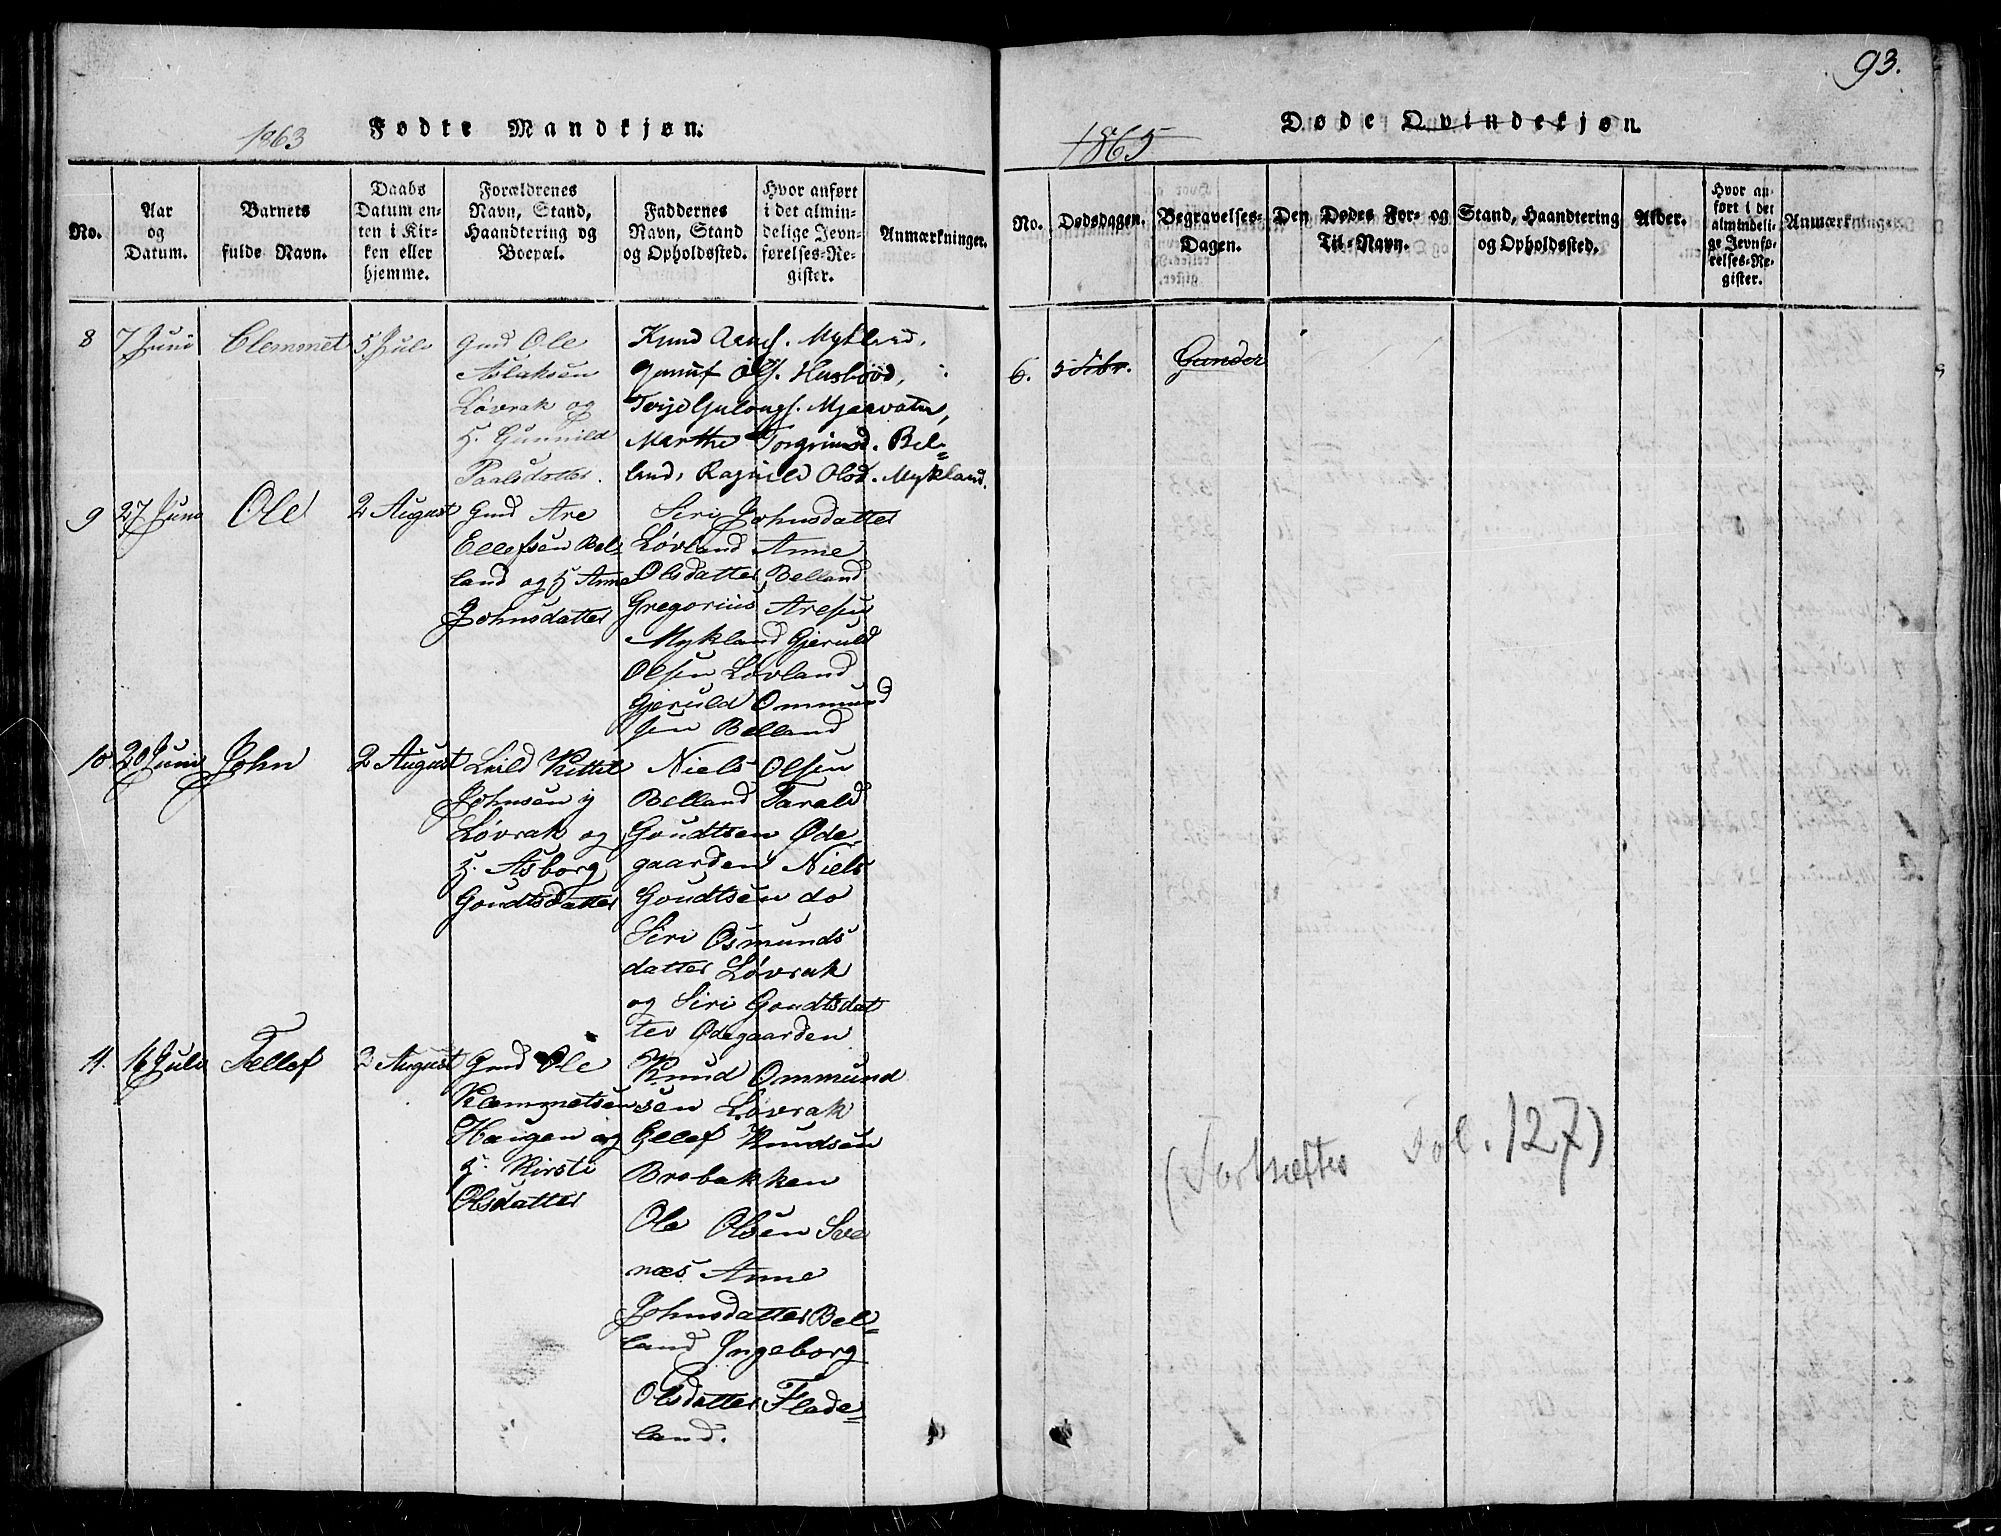 1863 Fødte Mandkjøn.
No.
Aar og Datum.
Barnets fulde Navn.
Daabs Datum enten i Kirken eller hjemme.
Forældrenes Navn, Stand, Haandtering og Boepæl.
Faddernes Navn, Stand og Opholdssted.
Hvor anført i det almindelige Jevnførelses-Register.
Anmærkninger.
8 7 Juni Clemmet 5 Juli
Gmd Ole
Aslaksen
Løvrak og
H. Gunnild
Paalsdatter.
Knud Aanes. Mykland,
Gunuf Ols. Husbvod,
Terje Gulongs. Mjaavatn,
Marthe Torgrimsd. Bel=
land, Ragnild Olsd. Mykland.
9 27 Juni Ole 2 August
Gmd Are
Ellefsen Bel
land og H Anne
Johnsdatter
Siri Johnsdatter
Løvland Anne
Olsdatter Belland
Gregorius Aresen
Mykland Gjeruld
Olsen Løvland
Gjeruld Ommund
sen Belland
10 20 Juni John 2 August
Leild Kittil
Johnsen i
Løvrak og
H. Asborg
Goudtsdatter
Niels Olsen
Belland Tarald
Goudtsen Øde
gaarden Niels
Goudtsen do
Siri Osmunds
datter Løvrak
og Siri Goudtsdat
ter Ødegaarden
11. 16 Juli Tellef 2 August
Gmd Ole
Klemmetsen
Haugen og
H. Kirsti
Olsdatter
Knud Ommund
sen Løvrak
Ellef Knudsen
Brobakken
Ole Olsen Sve
næs Anne
Johnsdatter Bel=
land Ingeborg
Olsdatter Flade=
land.
93.
1865 Døde Qvindekjøn.
No.
Dødsdagen.
Begravelses-Dagen.
Den Dødes For- og Til-Navn.
Stand, Haandtering og Opholdssted.
Alder.
Hvor anført i det almindelige Jevnførelses-Register.
Anmærkninger.
6. 5 Febr. Gunder
(Fortsættes Fol. 127)